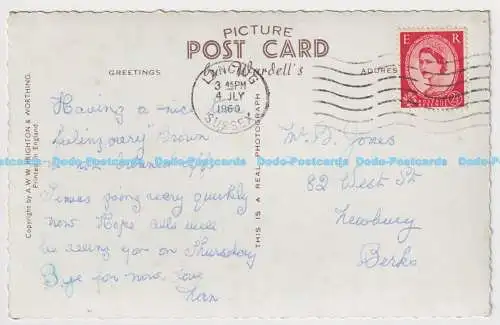 PICTURE
POST CARD
Wardell's
GREETINGS
ADDRESS
LANCING
3 45 PM
4 JLY
1960
SUSSEX
E R
POSTAGE
REVENUE
2½D
Copyright by A.W.W. BRIGHTON & WORTHING.
Printed in England
THIS IS A REAL PHOTOGRAPH
Having a nice
Brown
Times going very quickly
now Hope all's well
be seeing you on Thursday
Bye for now love
Nan
Mr D. Jones
82 West St
Newbury
Berks
Dodo-Postcards Dodo-Postcards Dodo-Postcards Dodo-Postcards Dodo-Postcards